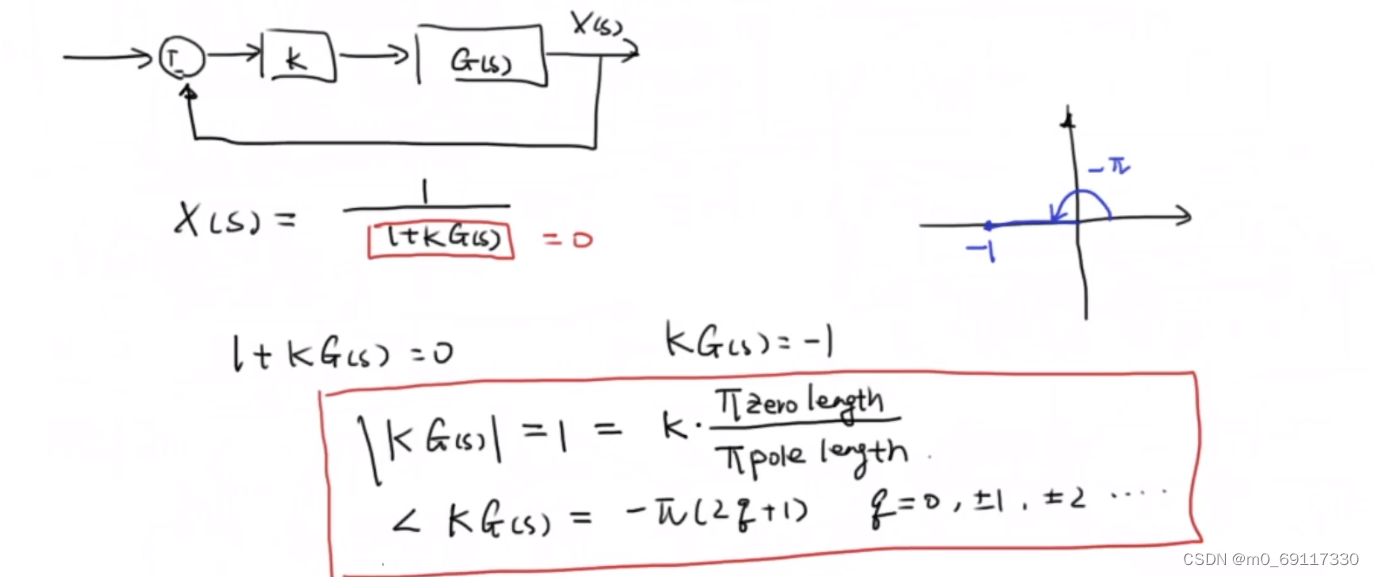 X(s)
k
G(s)
-
-π
X(s) = 1 / 1+kG(s) = 0
-1
1+kG(s)=0
kG(s)=-1
|kG(s)| = 1 = k · π zero length / π pole length
< kG(s) = -π(2q+1) q=0, ±1, ±2 ·····
CSDN @m0_69117330